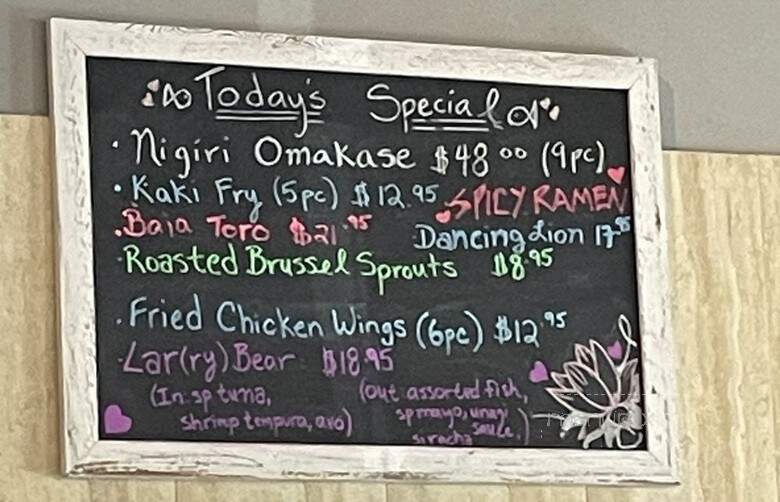 Today's Special
• Nigiri Omakase $48.00 (9pc)
• Kaki Fry (5pc) $12.95 SPICY RAMEN
• Baja Toro $21.95 Dancing Lion 17.95
• Roasted Brussel Sprouts $8.95
• Fried Chicken Wings (6pc) $12.95
• Lar(ry) Bear $18.95
(In sp tuna, (out assorted fish,
shrimp tempura, avo) sp mayo, unagi
sauce,)
siracha